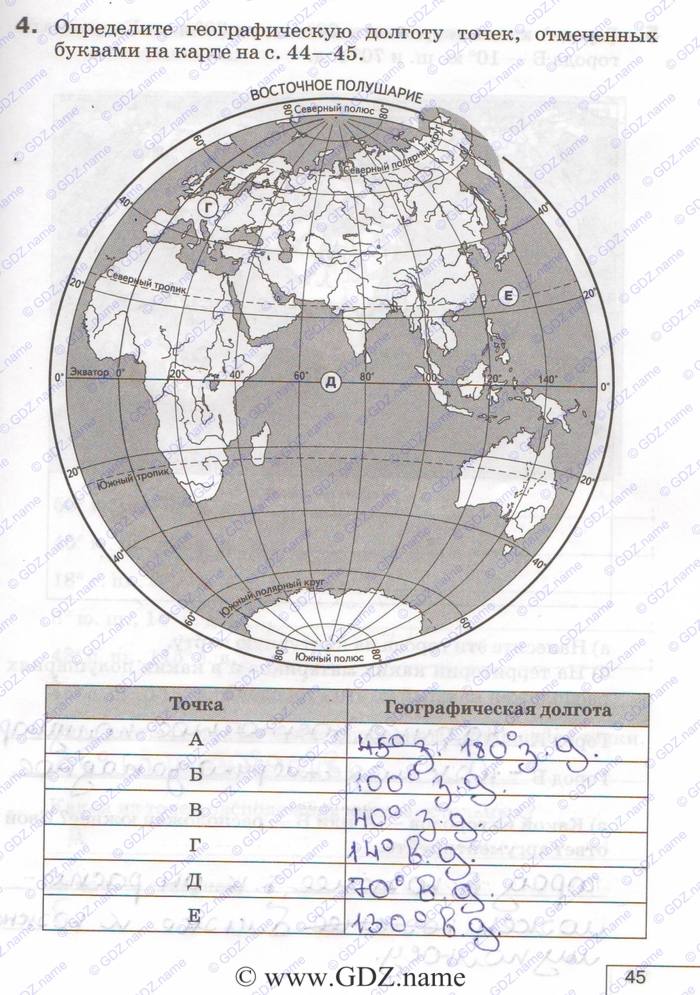 4. Определите географическую долготу точек, отмеченных
буквами на карте на с. 44—45.
ВОСТОЧНОЕ ПОЛУШАРИЕ
80° Северный полюс 80°
60°
Северный полярный круг
40° Г 40°
20° Северный тропик Е 20°
0° Экватор 0° 20° 40° 60° Д 80° 100° 120° 140° 0°
20° Южный тропик 20°
40° 40°
60° Южный полярный круг 60°
80° Южный полюс 80°
Точка Географическая долгота
А 45° з. 180° з.д.
Б 100° з.д.
В 40° з.д.
Г 14° в.д.
Д 70° в.д.
Е 130° в.д.
45
© www.GDZ.name